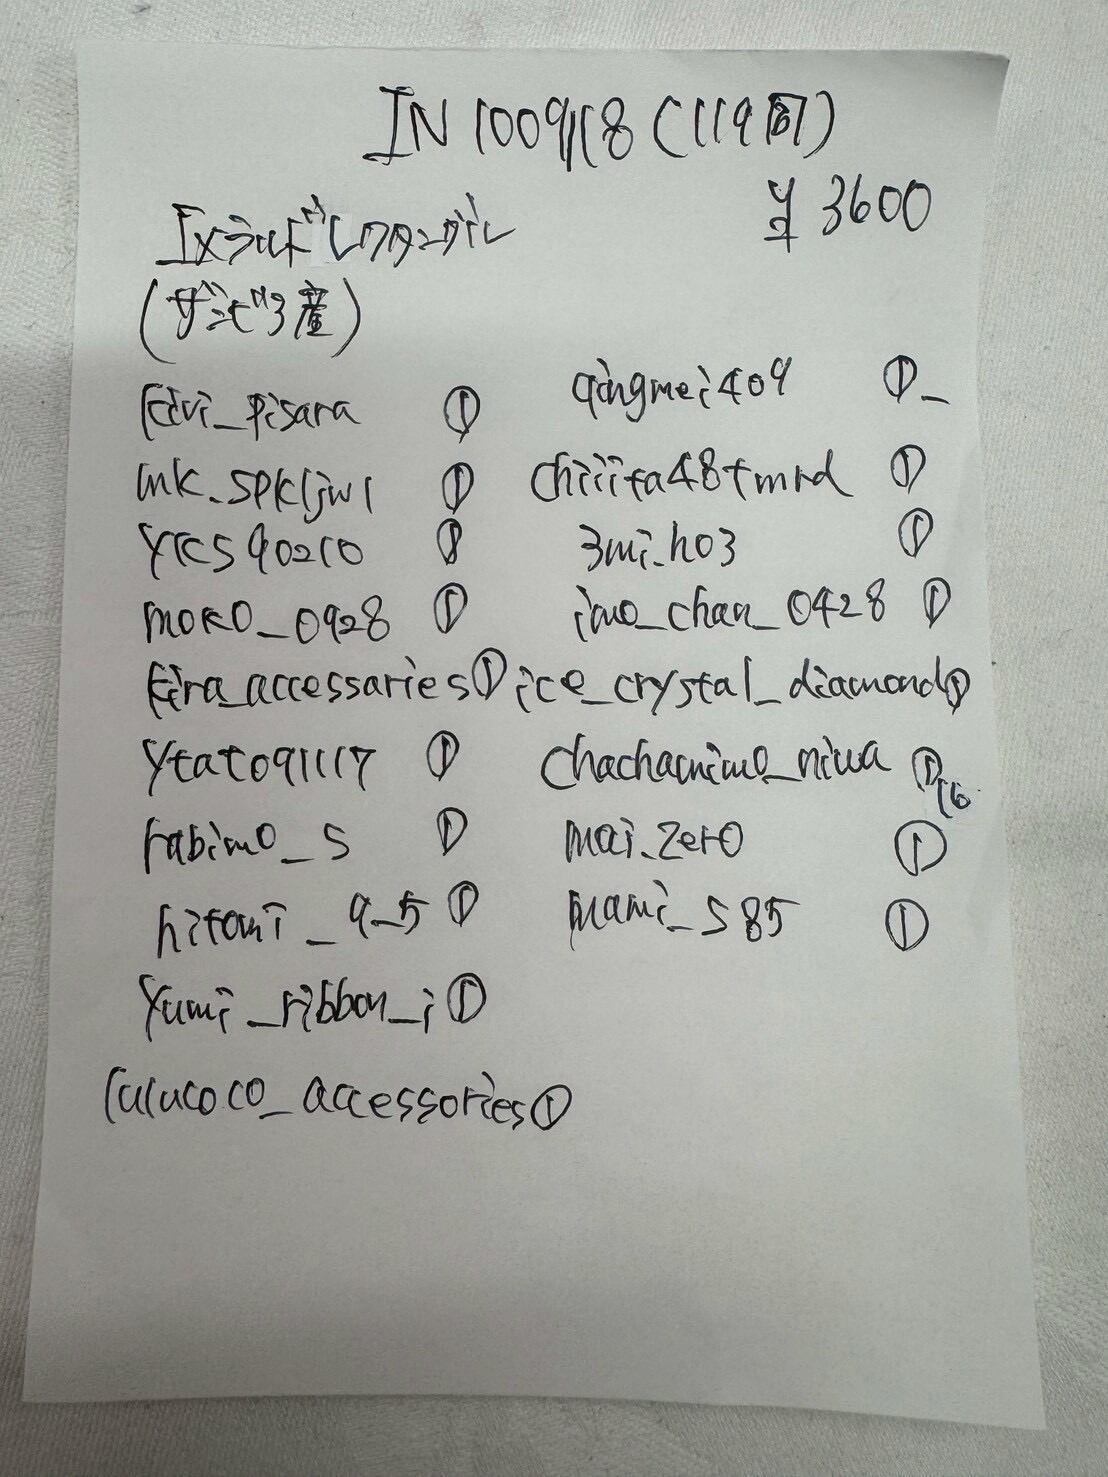 IN 100918 (119回)
¥ 3600
エメラルドレクタングル
(ザンビア産)
kivi_pisara ①
mk_spkljwl ①
yks90210 ①
moko_0928 ①
kira_accessaries ①
ytato91117 ①
rabimo_s ①
hitomi_9_5 ①
yumi_ribbon_i ①
lulucoco_accessories ①
qingmei409 ①_
chiiita48tmrd ①
3mi.ho3 ①
imo_chan_0428 ①
ice_crystal_diamond ①
chachamimo_niwa ①
16
mai.zero ①
mami_s85 ①